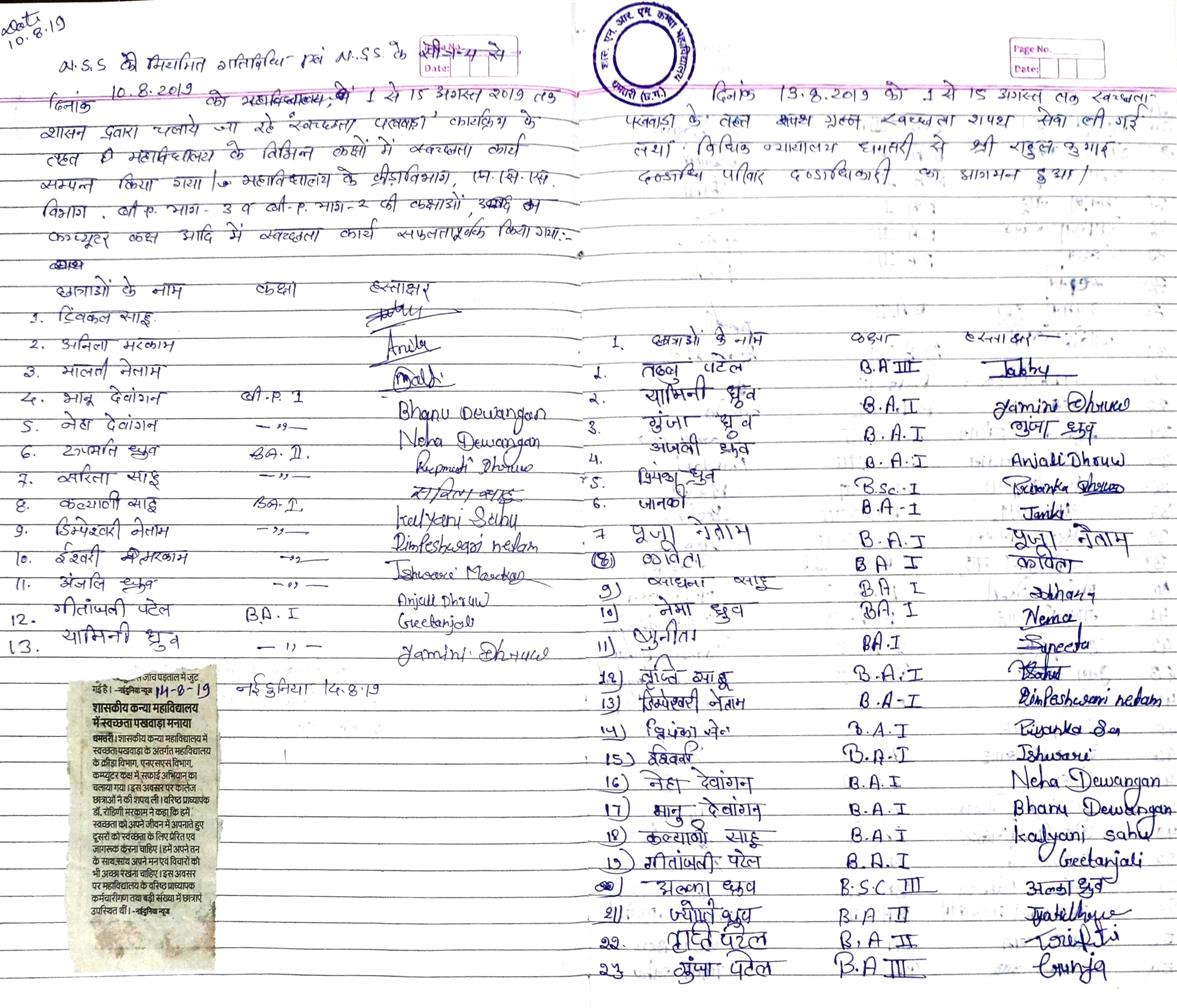 Date
10.8.19
N.S.S की नियमित गतिविधि- एवं N.S.S के
Date:
दिनांक 10.8.2019 को महाविद्यालय में 1 से 15 अगस्त 2019 तक
शासन द्वारा चलाये जा रहे स्वच्छता पखवाड़ा कार्यक्रम के
तहत महाविद्यालय के विभिन्न कक्षों में स्वच्छता कार्य
सम्पन्न किया गया। महाविद्यालय के क्रीड़ाविभाग, एन.एस.एस.
विभाग, बी.ए. भाग-3 व बी.ए. भाग-2 की कक्षाओं,
कम्प्यूटर कक्ष आदि में स्वच्छता कार्य सफलतापूर्वक किया गया:-
छात्राओं के नाम कक्षा हस्ताक्षर
1. ट्विंकल साहू
2. अनिता मरकाम Anita
3. मालती नेताम Malti
4. भानू देवांगन बी.ए. I Bhanu Dewangan
5. नेहा देवांगन -,,- Neha Dewangan
6. रूपमति ध्रुव B.A. II. Rupmati Dhruw
7. सरिता साहू -,,- सरिता साहू
8. कल्याणी साहू B.A. I Kalyani Sahu
9. डिम्पेश्वरी नेताम -,,- Dimpeshwari netam
10. ईश्वरी मरकाम -,,- Ishwari Markam
11. अंजलि ध्रुव -,,- Anjali Dhruw
12. गीतांजली पटेल B.A. I Geetanjali
13. यामिनी ध्रुव -,,- Yamini Dhruw
जांच पड़ताल में जुट
गई है। -नईदुनिया न्यूज 14-8-19 नई दुनिया 14.8.19
शासकीय कन्या महाविद्यालय
में स्वच्छता पखवाड़ा मनाया
धमतरी। शासकीय कन्या महाविद्यालय में
स्वच्छता पखवाड़ा के अंतर्गत महाविद्यालय
के क्रीड़ा विभाग, एनएसएस विभाग,
कम्प्यूटर कक्ष में सफाई अभियान का
चलाया गया। इस अवसर पर कालेज
छात्राओं ने की शपथ ली। वरिष्ठ प्राध्यापक
डॉ. रोहिणी मरकाम ने कहा कि हमें
स्वच्छता को अपने जीवन में अपनाते हुए
दूसरों को स्वच्छता के लिए प्रेरित एवं
जागरूक करना चाहिए। हमें अपने तन
के साथ साथ अपने मन एवं विचारों को
भी अच्छा रखना चाहिए। इस अवसर
पर महाविद्यालय के वरिष्ठ प्राध्यापक
कर्मचारीगण तथा बड़ी संख्या में छात्राएं
उपस्थित थीं। -नईदुनिया न्यूज
आर. एन. आर. एम. कन्या महाविद्यालय
धमतरी (छ.ग.)
Page No.
Date:
दिनांक 13.8.2019 को 1 से 15 अगस्त तक स्वच्छता
पखवाड़ा के तहत शपथ ग्रहण, स्वच्छता शपथ सेवा ली गई
तथा विधिक न्यायालय धमतरी से श्री राहुल कुमार
दण्डाधिकारी का आगमन हुआ।
1. छात्राओं के नाम कक्षा हस्ताक्षर
1. तब्बु पटेल B.A III Tabbu
2. यामिनी ध्रुव B.A. I Yamini Dhruw
3. गुंजा ध्रुव B.A. I गुंजा ध्रुव
4. अंजली ध्रुव B.A. I Anjali Dhruw
5. प्रियंका ध्रुव B.Sc.-I Priyanka Dhruw
6. जानकी B.A.-I Janki
7 पूजा नेताम B.A. I पूजा नेताम
(8) कविता B A I कविता
9) साधना साहू B.A. I
10) नेमा ध्रुव B.A. I Nema
11) सुनीता B.A. I Suneeta
12) तृप्ति साहू B.A. I Tsahu
13) डिम्पेश्वरी नेताम B.A-I Dimpeshwari netam
14) प्रियंका सेन B.A. I Priyanka Sen
15) ईश्वरी B.A. I Ishwari
16) नेहा देवांगन B.A. I Neha Dewangan
17) भानु देवांगन B.A. I Bhanu Dewangan
18) कल्याणी साहू B.A. I Kalyani sahu
19) गीतांजली पटेल B.A. I Geetanjali
20) अल्का ध्रुव B.S.C III अल्का ध्रुव
21). ज्योति ध्रुव B.A II
22. तृप्ति पटेल B.A. II
23 गुंजा पटेल B.A III Gunja